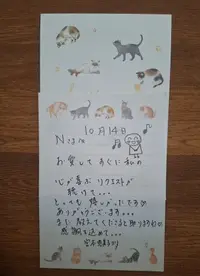 10月14日
Nさん
お会いしてすぐに私の
心が喜ぶリクエストが
聴けて...
とっても嬉しかったです
ありがとうございます...
感謝を込めて...